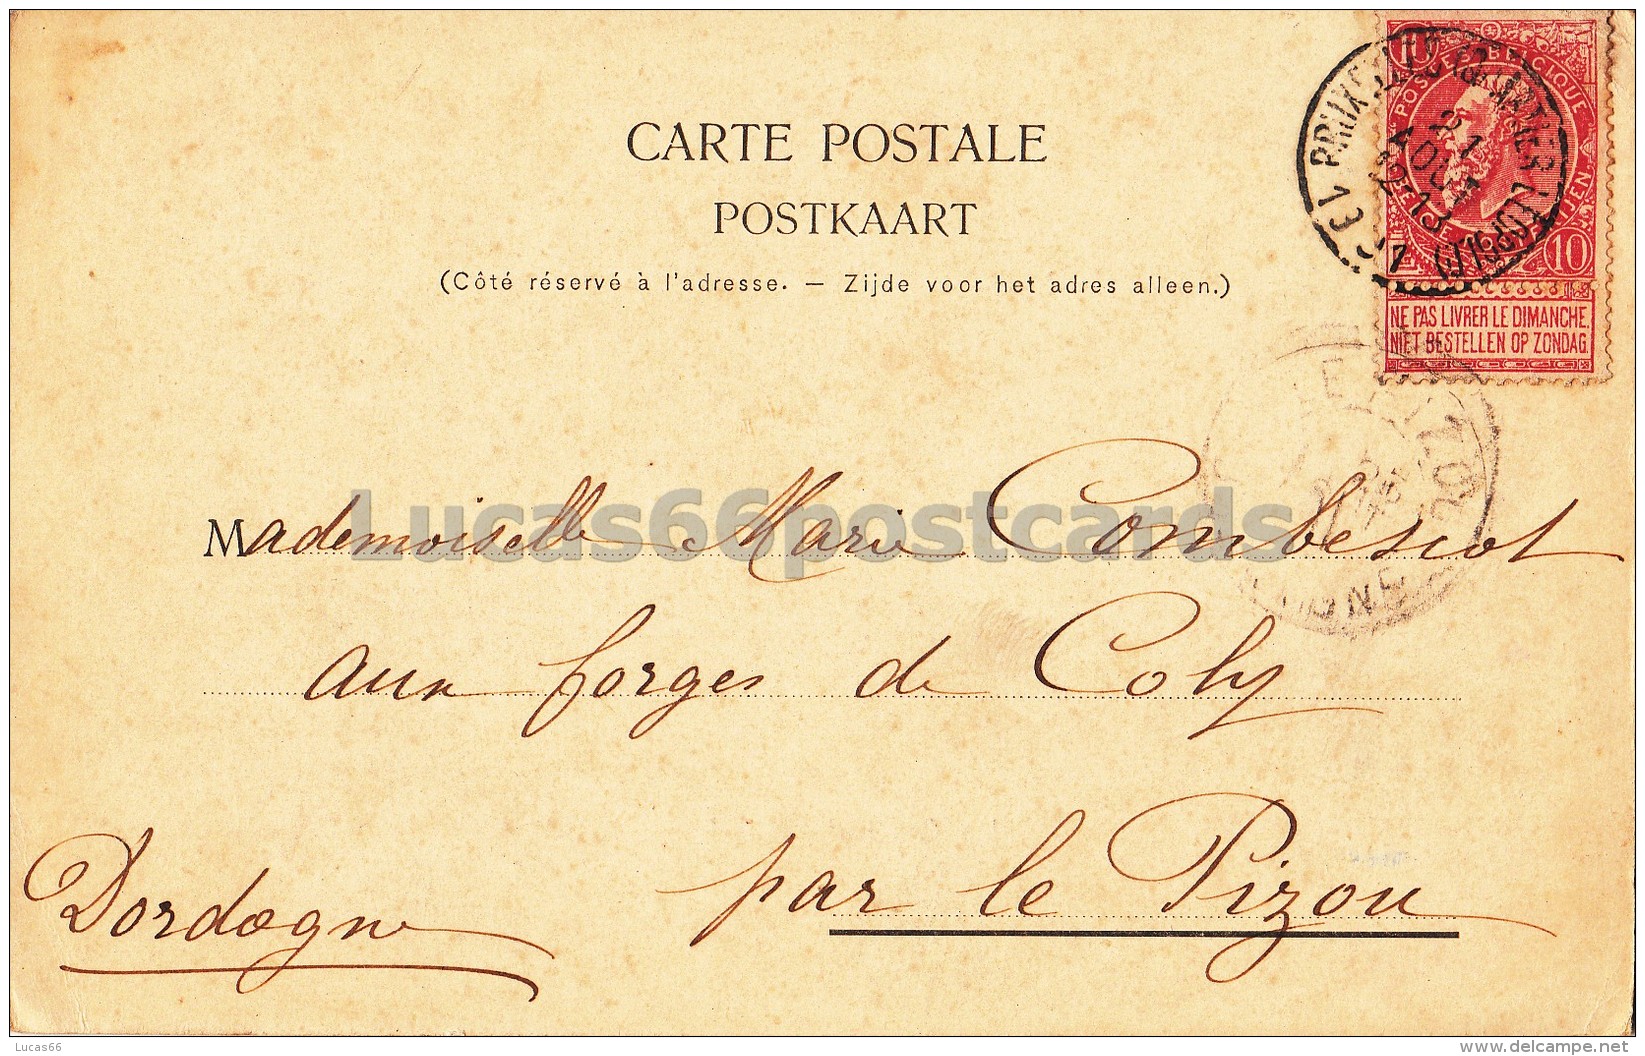 CARTE POSTALE
POSTKAART
(Côté réservé à l'adresse. — Zijde voor het adres alleen.)
POSTES BELGIQUE
10 10
NE PAS LIVRER LE DIMANCHE.
NIET BESTELLEN OP ZONDAG.
Lucas66postcards
Mademoiselle Marie Combescot
aux forges de Coly
par le Pizou
Dordogne
Lucas66
www.delcampe.net